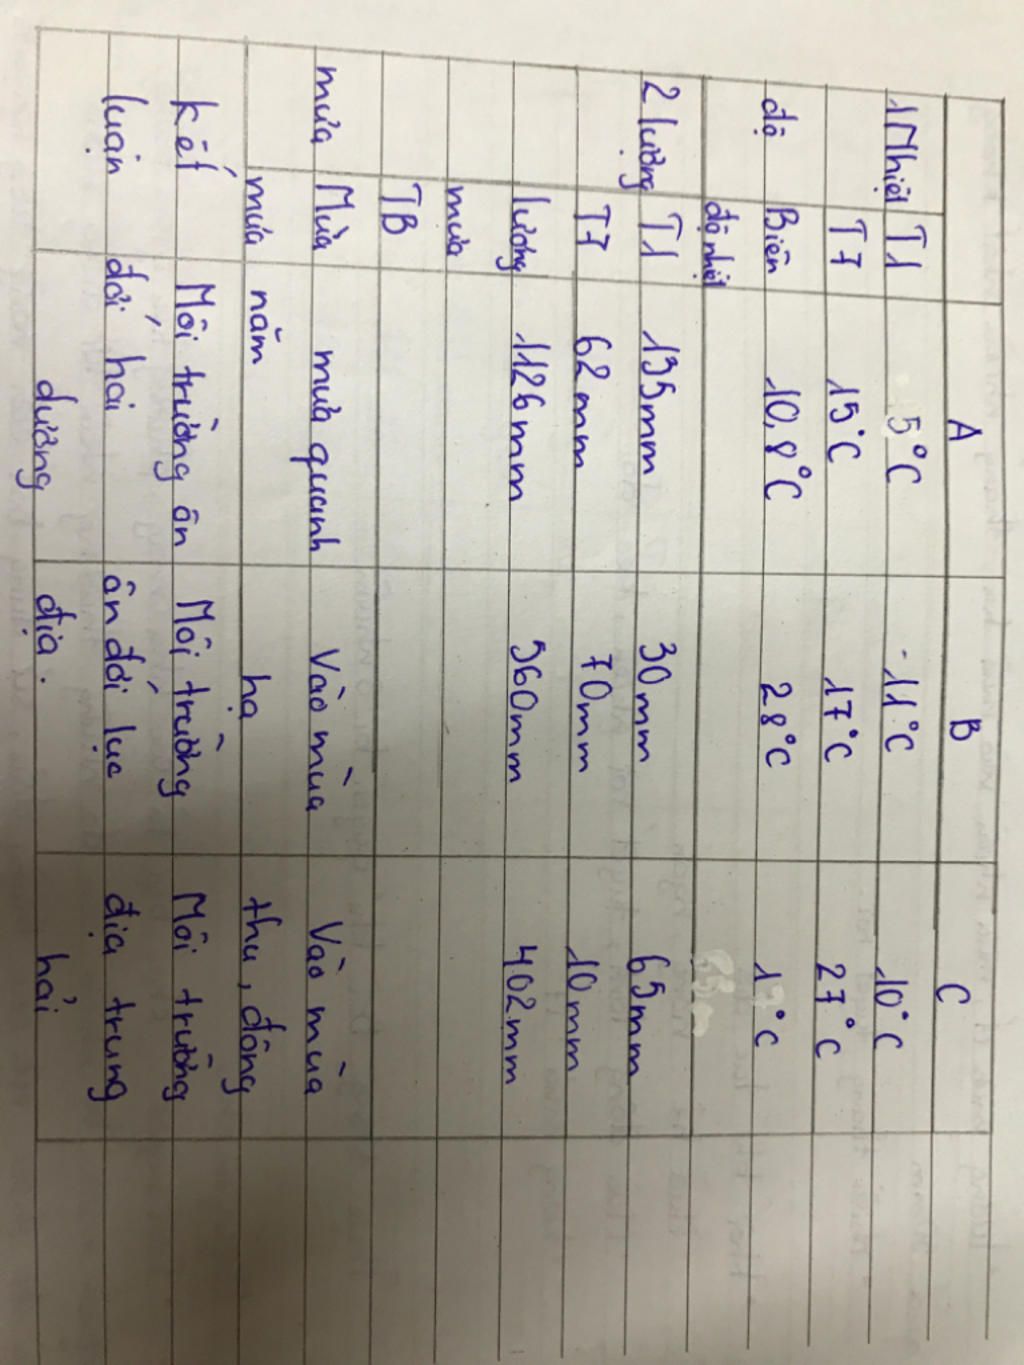 A B C
1 Nhiệt T1 5°C -11°C 10°C
T7 15°C 17°C 27°C
độ Biên 10,8°C 28°C 17°C
độ nhiệt
2 lượng T1 135mm 30mm 65mm
T7 62mm 70mm 10mm
lượng 1126mm 560mm 402mm
mưa
TB
mưa Mùa mưa quanh Vào mùa Vào mùa
mưa năm hạ thu, đông
kết Môi trường ôn Môi trường Môi trường
luận đới hải ôn đới lục địa trung
dương địa. hải